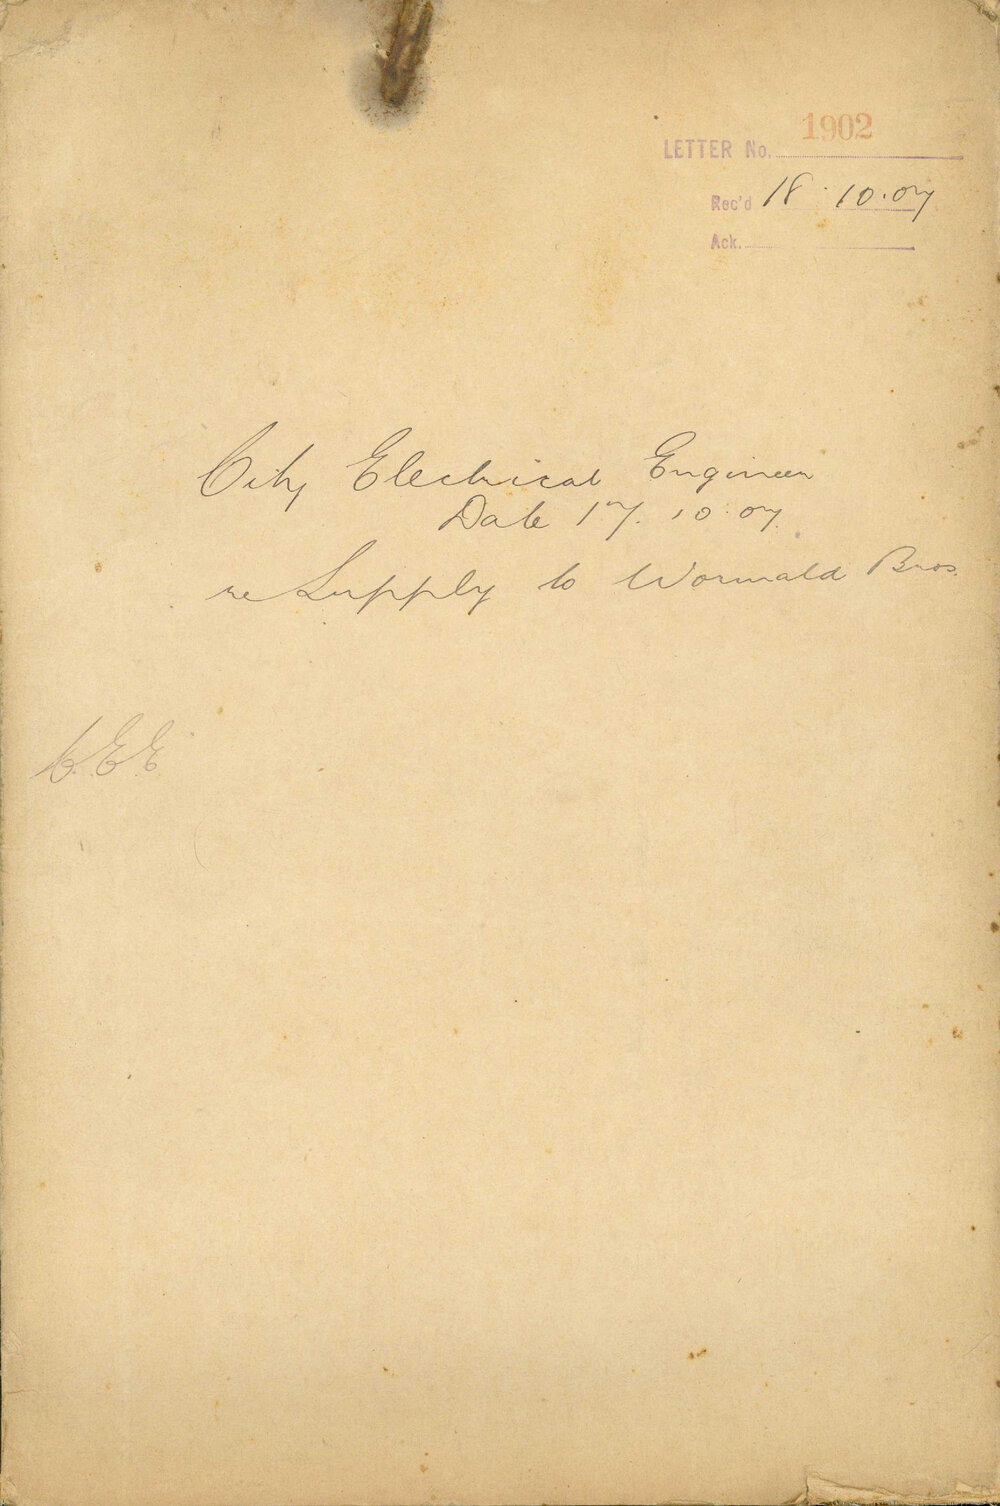 LETTER No. 1902
Rec'd 18.10.07
Ack.
City Electrical Engineer
Date 17.10.07
re Supply to Wormald Bros.
C.E.E.